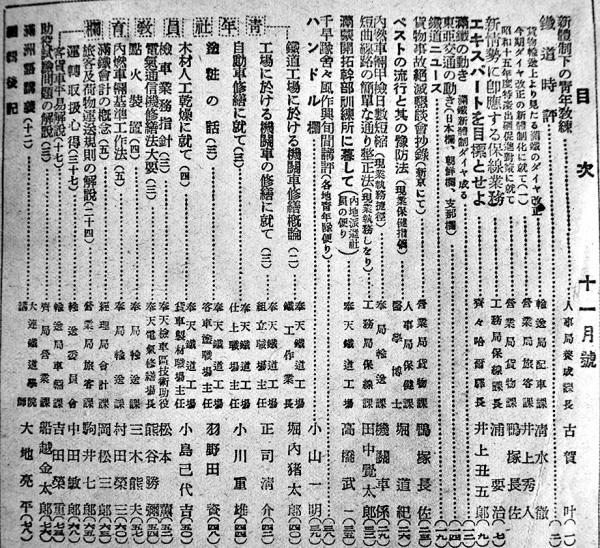 目次 十一月號
新體制下の青年教練 人事局養成課長 古賀叶
鐵道時評
貨物輸送上より見たる滿鐵のダイヤ改正 輸送局配車課 清水徹
今期ダイヤ改正の新體制化に就て(一) 營業局旅客課 井上秀人
昭和十五年度特産出廻促進對策に就て 營業局貨物課 鴨塚長佐
新情勢に即應する保線業務 工務局保線課 浦要治
エキスパートを目標とせよ 齊々哈爾驛長 井上丑五郎
滿鐵の動き 滿鐵新體制ダイヤ成る
東亞交通の動き(日本欄、朝鮮欄、支部欄)
鐵道ニュース
貨物事故絶滅懇談會抄錄(新京にて) 營業局貨物課 鴨塚長佐
ペストの流行と其の豫防法(現業保健指導) 人事局保健課 醫學博士 堀道紀
內燃車輛甲檢日數短縮(現業執務捷徑) 奉局輸送課 機關車係
短曲線路の簡單な通り整正法(現業執務しをり) 工務局保線課 田中覺太郎
滿蒙開拓幹部訓練所に暮して(內地派遣社員の便り) 奉天鐵道工場 高橋武一
千早隊舍々風作興旬間講評(各地青年隊便り) 小山一明
ハンドル欄
青年社員教育欄
鐵道工場に於ける機關車修繕概論 奉天鐵道工場 鐵工作業長 堀內猪太郎
工場に於ける機關車の修繕に就て(二) 奉天鐵道工場 組立職場主任 正司清介
自動車修繕に就て(三) 奉天鐵道工場 仕上職場主任 小川重雄
塗粧の話(三) 奉天鐵道工場 客車塗職場主任 羽野田資
木材人工乾燥に就て(四) 奉天鐵道工場 貨車製材職場主任 小島己代吉
檢車業務指針(三) 奉天檢車區技術助役 松本薰
電氣通信機修繕法大要(三) 奉天電氣修繕場長 熊谷勝彌
點火裝置(四) 奉局輸送課 三木熊夫
內燃車輛基準工作法(五) 奉局輸送課 村田榮三
滿鐵會計の概念(三) 經理局會計課 岡松三郎
旅客及荷物運送規則の解說(二十四) 營業局旅客課 駒井七郎
運轉取扱心得(三十七) 輸送委員會 中田敏郎
客貨車平易解說(十七) 輸送局車輛課 吉田榮重
助役試驗問題の解說(三) 齊局營業課 船越金太郎
滿洲語講義(十二) 大連鐵道學院講師 大地亮平
編輯後記